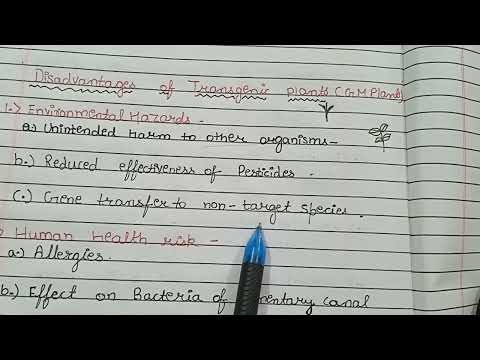 Disadvantages of Transgenic plants (GM Plants)
1.> Environmental Hazards -
a.) Unintended harm to other organisms -
b.) Reduced effectiveness of Pesticides.
(c.) Gene transfer to non-target species.
Human health risk -
a.) Allergies.
b.) Effect on Bacteria of canal